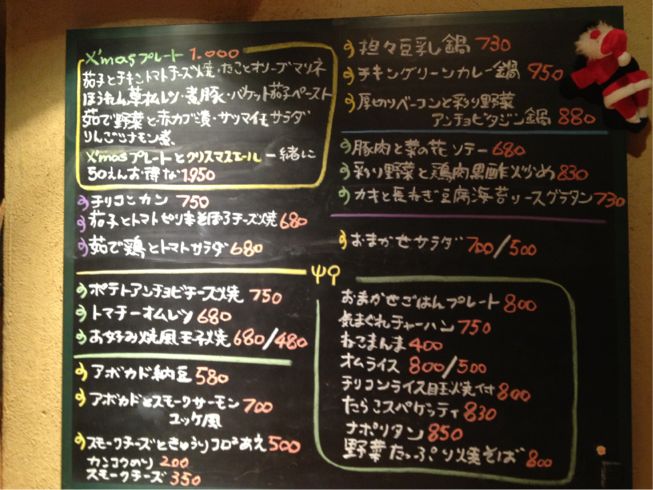 X'masプレート 1,000
茄子とチキントマトチーズ焼・たことオリーブマリネ
ほうれん草オムレツ・煮豚・バケット茄子ペースト
茹で野菜と赤カブ漬・サツマイモサラダ
りんごシナモン煮
X'masプレートとクリスマスエール一緒に
50えんお得な1950
チリコンカン 750
茄子とトマトピリ辛そぼろチーズ焼 680
茹で鶏とトマトサラダ 680
ポテトアンチョビチーズ焼 750
トマチーオムレツ 680
お好み焼風玉子焼 680/480
アボカド納豆 580
アボカドとスモークサーモン
ユッケ風 700
スモークチーズときゅうりコロコロあえ 500
カンコウのり 200
スモークチーズ 350
担々豆乳鍋 730
チキングリーンカレー鍋 950
厚切りベーコンと彩り野菜
アンチョビタジン鍋 880
豚肉と菜の花ソテー 680
彩り野菜と鶏肉黒酢炒め 830
カキと長ねぎ豆腐海苔ソースグラタン 730
おまかせサラダ 700/500
おまかせごはんプレート 800
気まぐれチャーハン 750
ねこまんま 400
オムライス 800/500
チリコンライス目玉焼付 800
たらこスパゲッティ 830
ナポリタン 850
野菜たっぷり焼そば 800